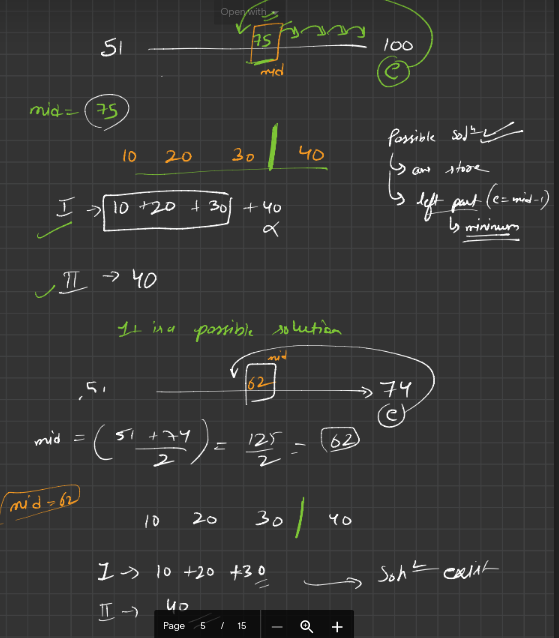 Open with
75
51 100
mid e
mid = 75
10 20 30 | 40
Possible solⁿ
↳ ans store
I → 10 + 20 + 30 + 40
↳ left part (e = mid - 1)
α
↳ minimum
II → 40
It is a possible solution
mid
51 62 74
e
mid = (51 + 74 / 2) = 125 / 2 = 62
mid = 62
10 20 30 | 40
I → 10 + 20 + 30 → Solⁿ exist
II → 40
Page 5 / 15 — +